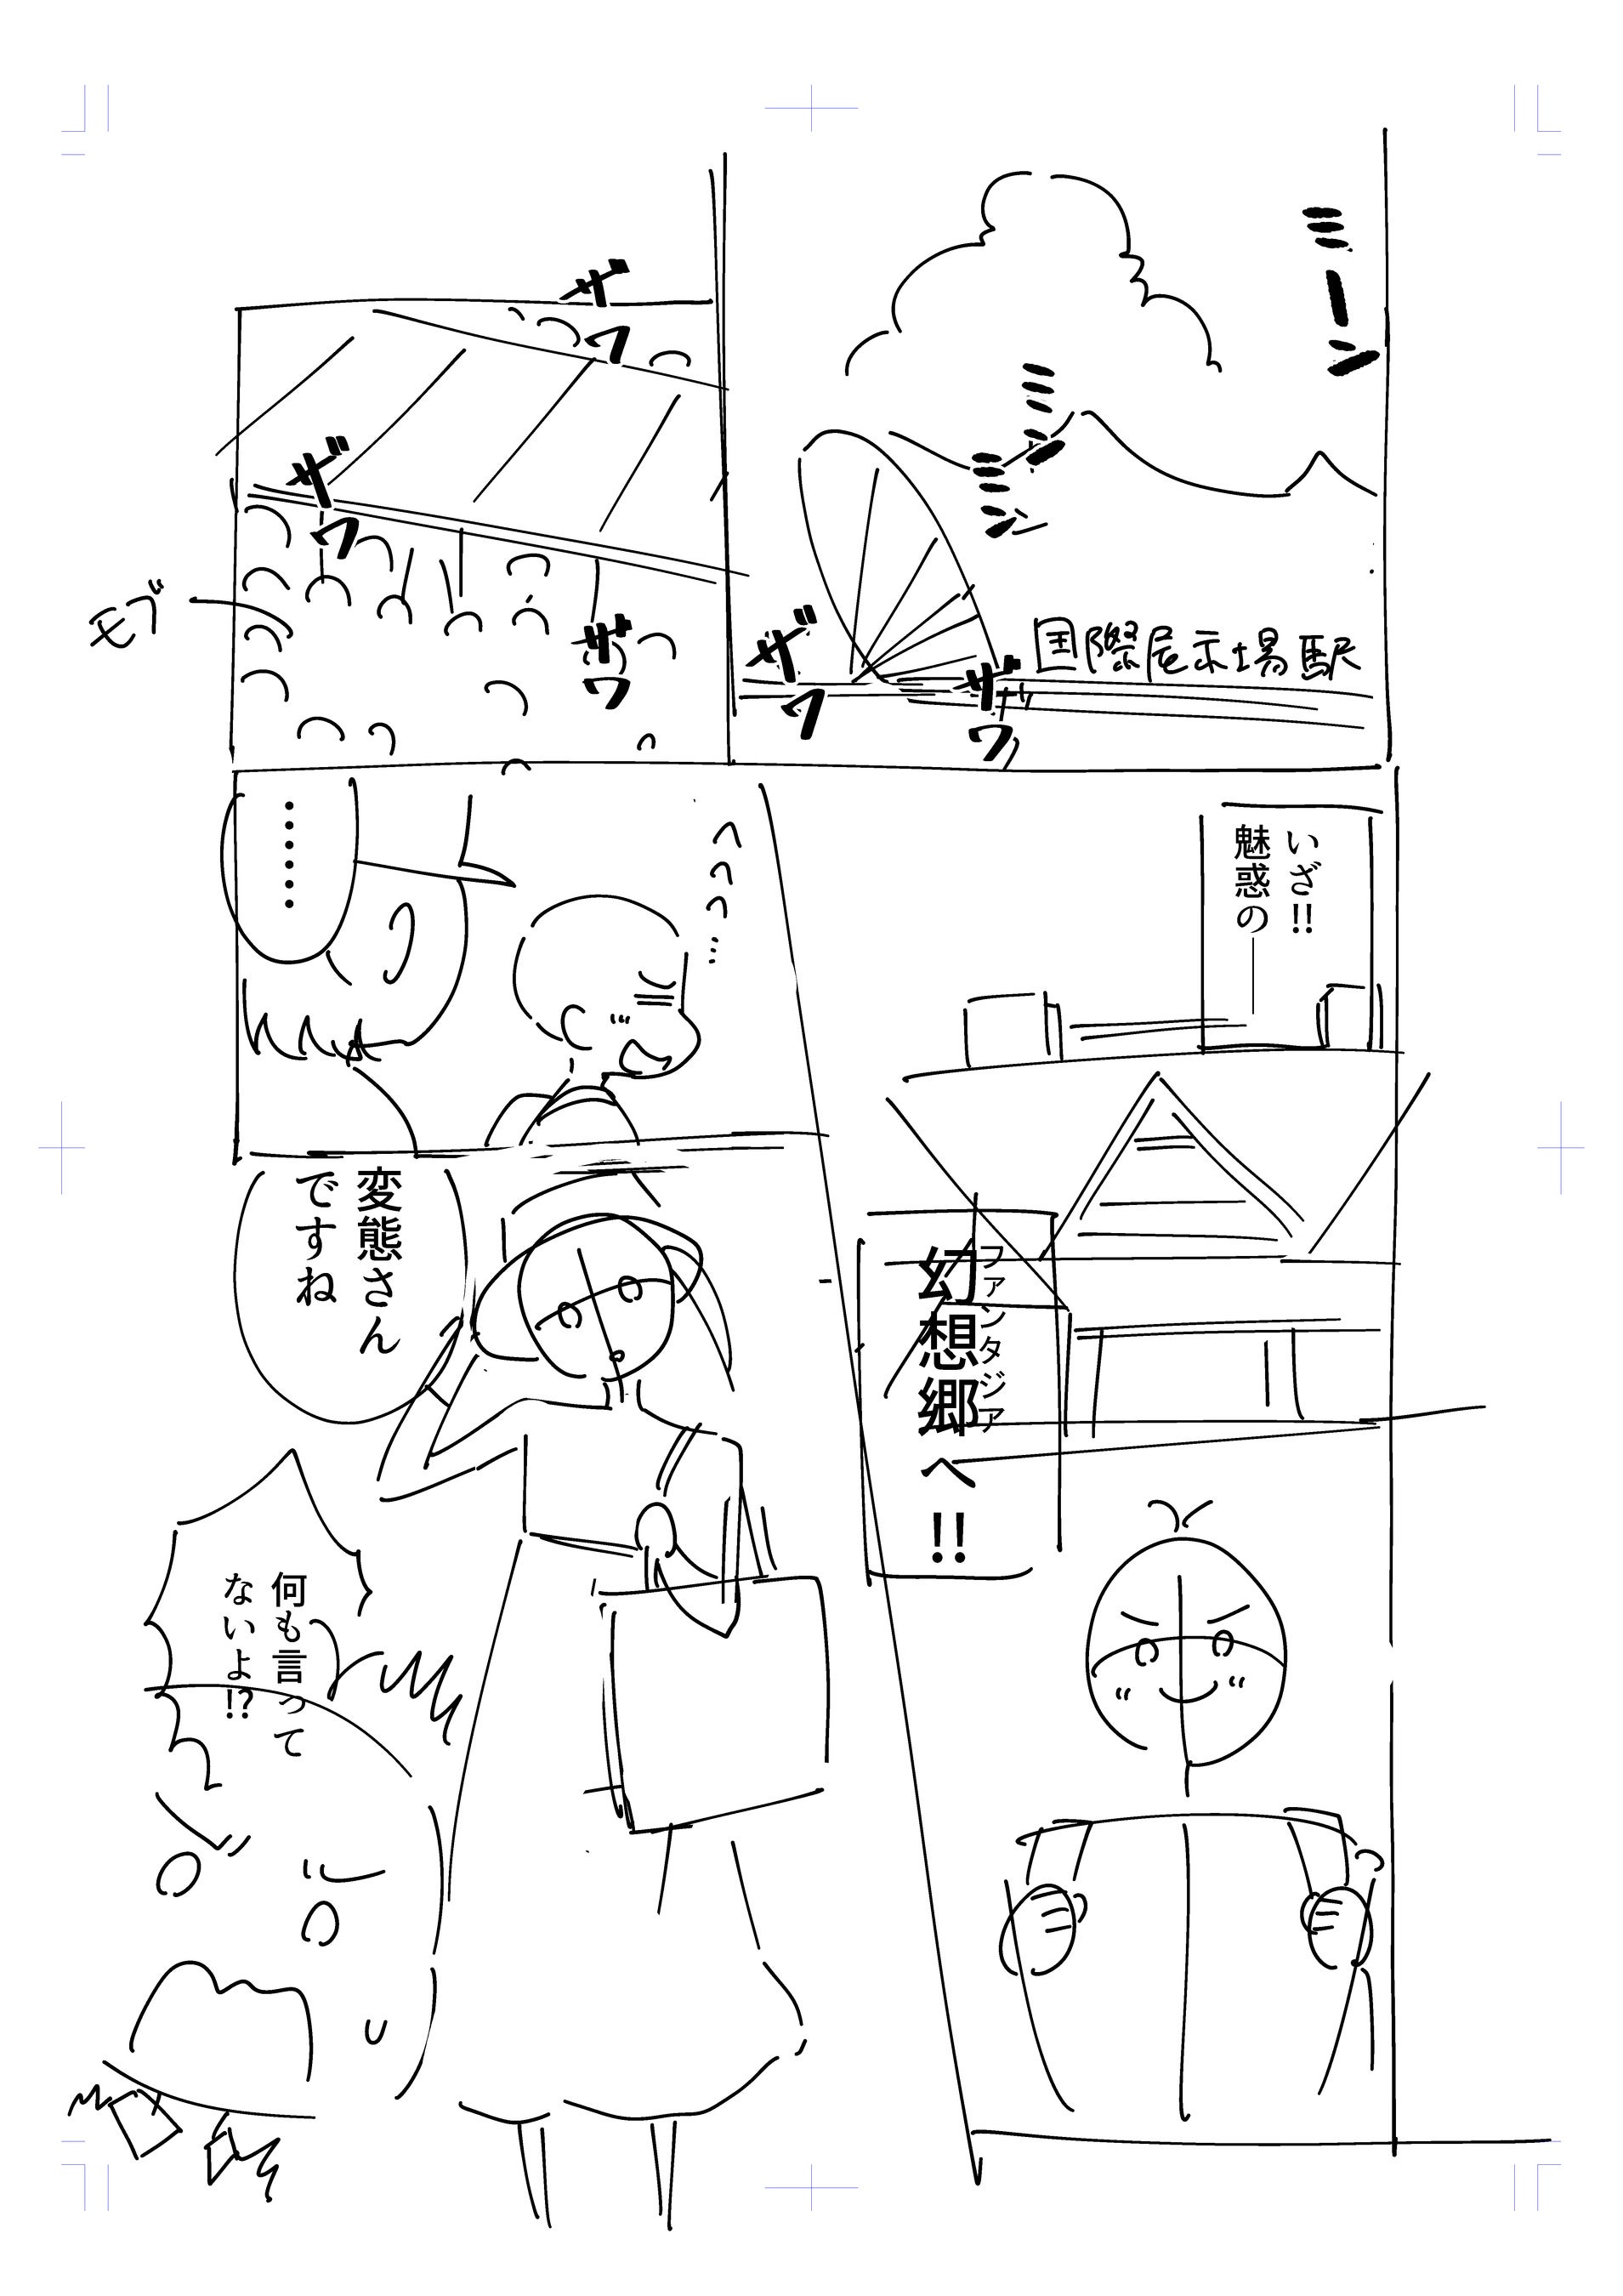 ミーン
ミーン
ミーン
国際展示場駅
ザワ
ザワ
ザワ
ザワ
ザワ
モブ
いざ!!
魅惑の――
幻想郷へ!!
ファンタジア
へへへ…
……
変態さん
ですね
何も言って
ないよ!?